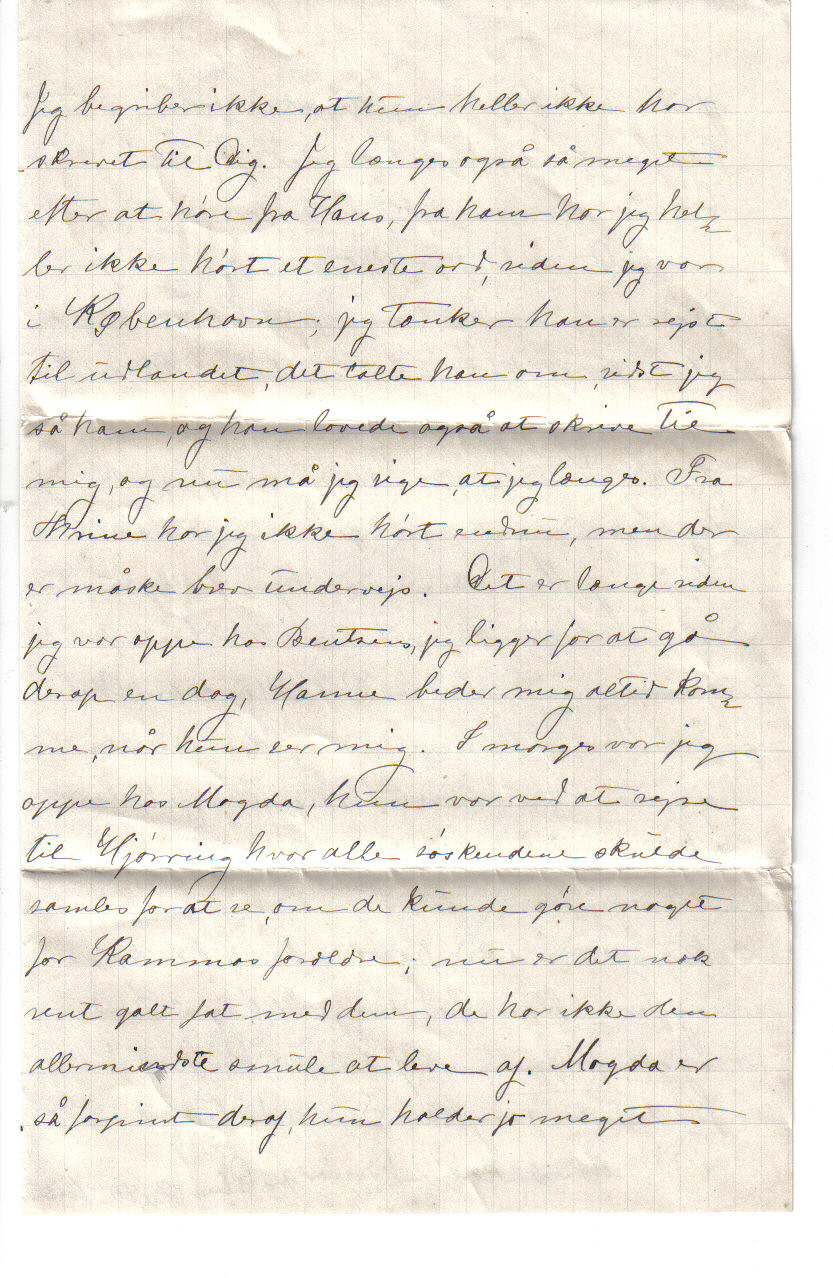 Jeg begriber ikke, at hun heller ikke har
skrevet til Dig. Jeg længes også så meget
efter at høre fra Hans, fra ham har jeg hel=
ler ikke hørt et eneste ord, siden jeg var
i København; jeg tænker han er rejst
til udlandet, det talte han om, sidst jeg
så ham, og han lovede også at skrive til
mig, og nu må jeg sige, at jeg længes. Fra
Thrine har jeg ikke hørt endnu, men der
er måske brev undervejs. Det er længe siden
jeg var oppe hos Bentsens, jeg ligger for at gå
derop en dag, Hanne beder mig altid kom=
me, når hun ser mig. I morges var jeg
oppe hos Magda, hun var ved at rejse
til Hjørring hvor alle søskendene skulde
samles for at se, om de kunde gøre noget
for Kammas forældre; nu er det nok
rent galt fat med dem, de har ikke den
allermindste smule at leve af. Magda er
så forpint deraf, hun holder jo meget